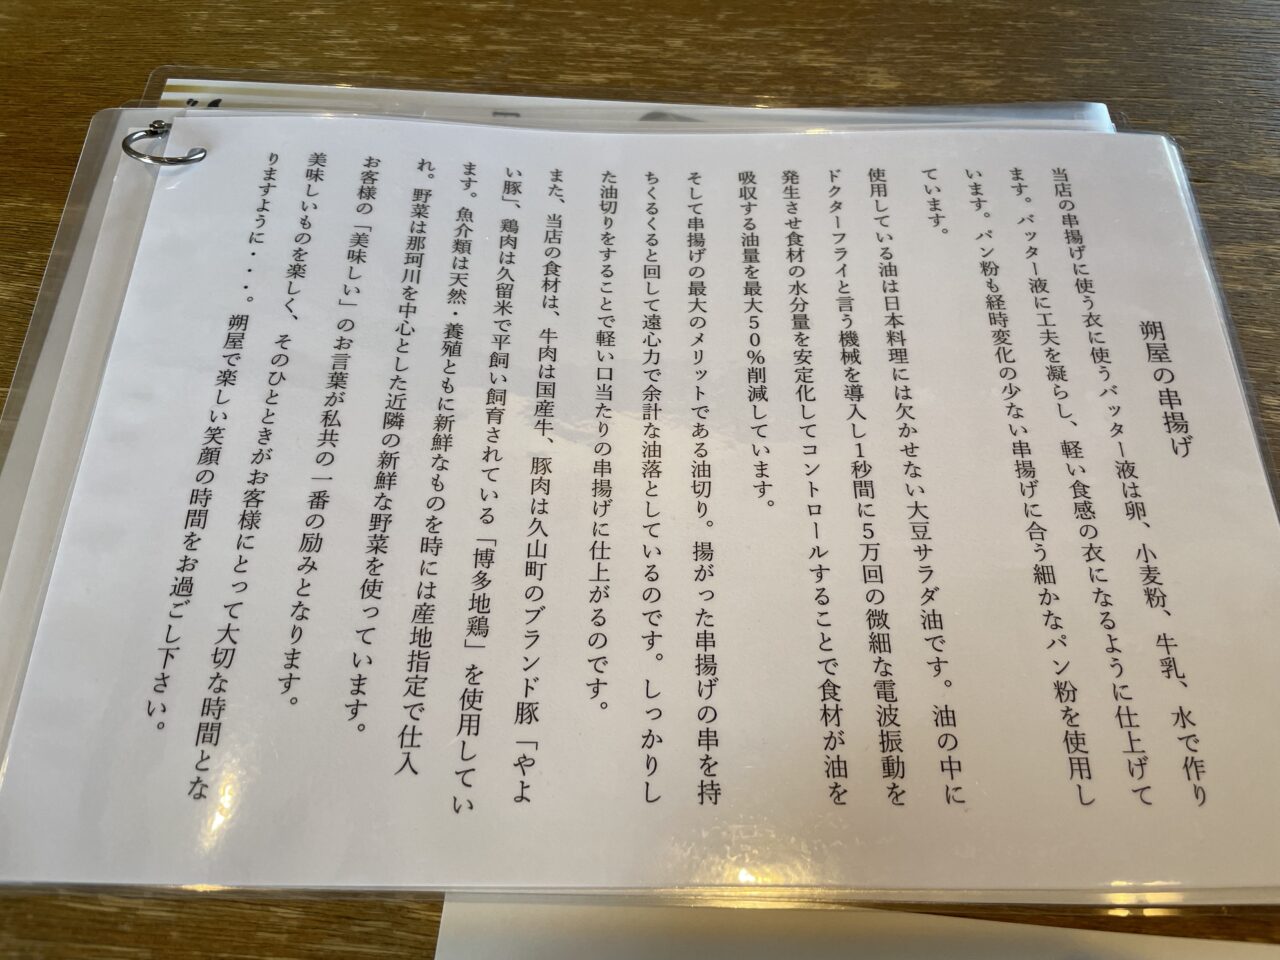 朔屋の串揚げ
当店の串揚げに使う衣に使うバッター液は卵、小麦粉、牛乳、水で作り
ます。バッター液に工夫を凝らし、軽い食感の衣になるように仕上げて
います。パン粉も経時変化の少ない串揚げに合う細かなパン粉を使用し
ています。
使用している油は日本料理には欠かせない大豆サラダ油です。油の中に
ドクターフライと言う機械を導入し1秒間に5万回の微細な電波振動を
発生させ食材の水分量を安定化してコントロールすることで食材が油を
吸収する油量を最大50%削減しています。
そして串揚げの最大のメリットである油切り。揚がった串揚げの串を持
ちくるくると回して遠心力で余計な油落としているのです。しっかりし
た油切りをすることで軽い口当たりの串揚げに仕上がるのです。
また、当店の食材は、牛肉は国産牛、豚肉は久山町のブランド豚「やよ
い豚」、鶏肉は久留米で平飼い飼育されている「博多地鶏」を使用してい
ます。魚介類は天然・養殖ともに新鮮なものを時には産地指定で仕入
れ。野菜は那珂川を中心とした近隣の新鮮な野菜を使っています。
お客様の「美味しい」のお言葉が私共の一番の励みとなります。
美味しいものを楽しく、そのひとときがお客様にとって大切な時間とな
りますように・・・。朔屋で楽しい笑顔の時間をお過ごし下さい。